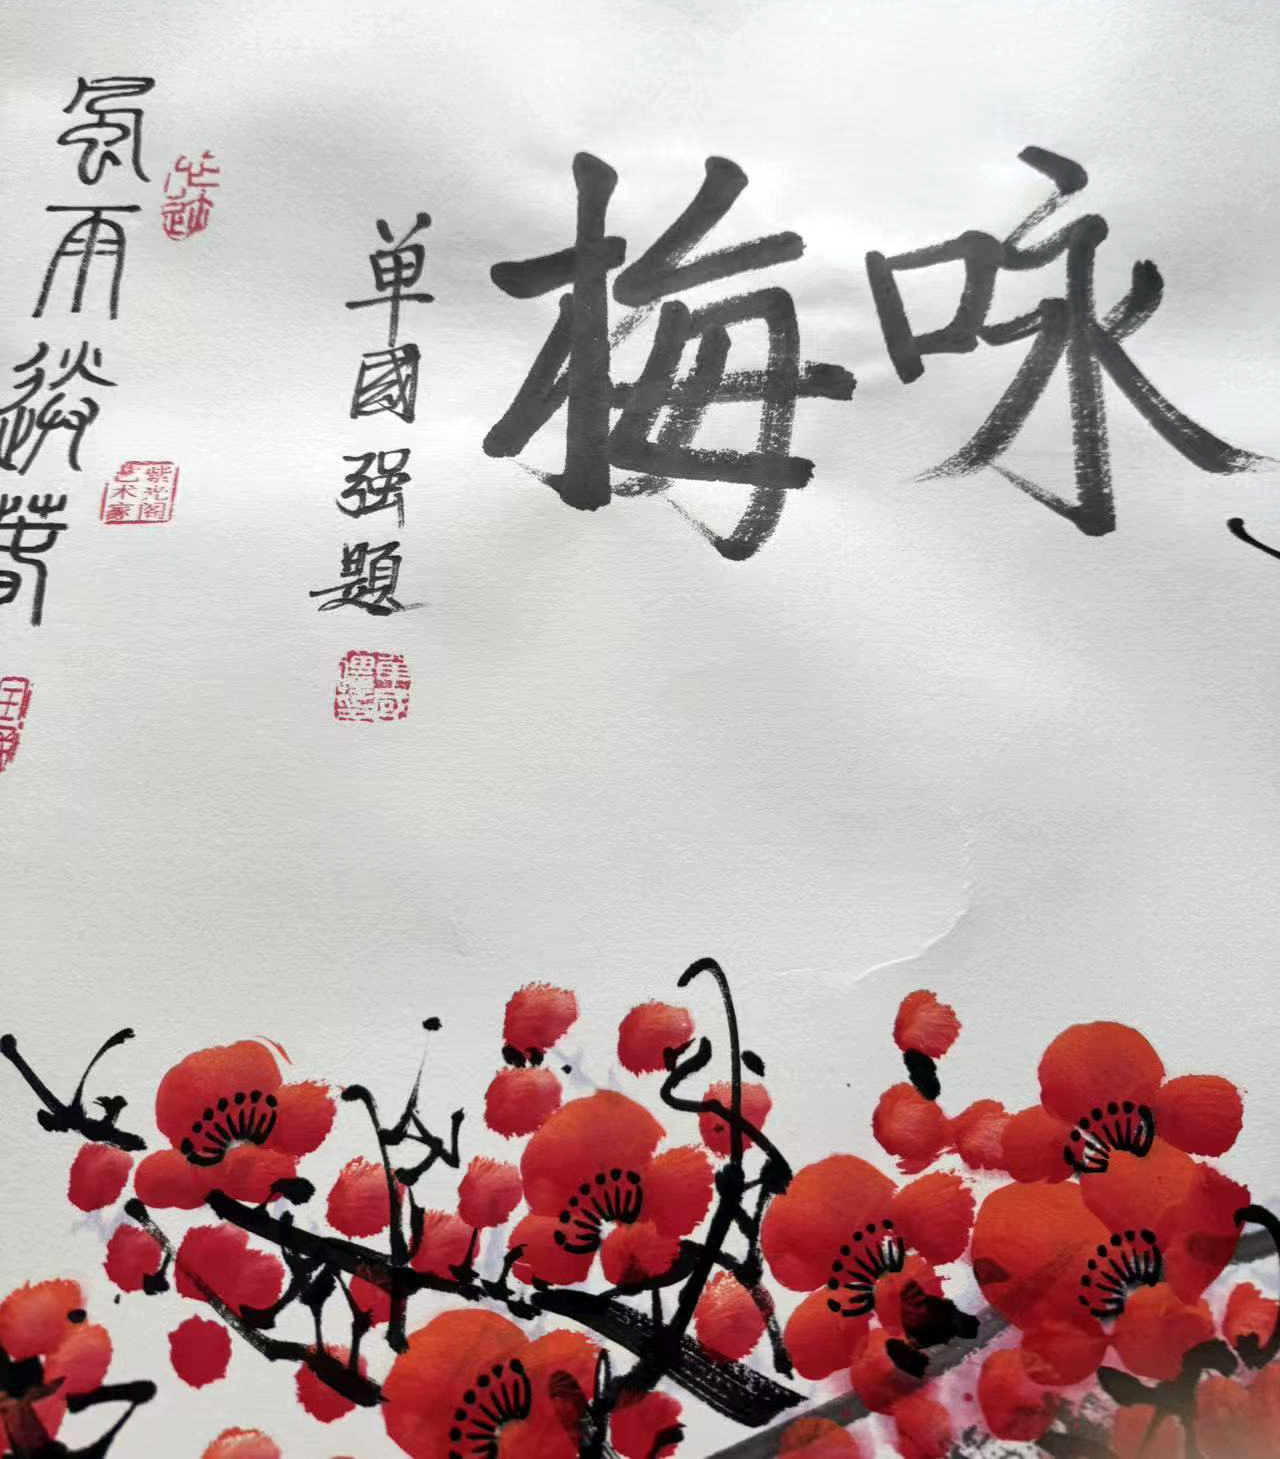 咏梅
单國强題
風雨送春
紫光阁
艺术家